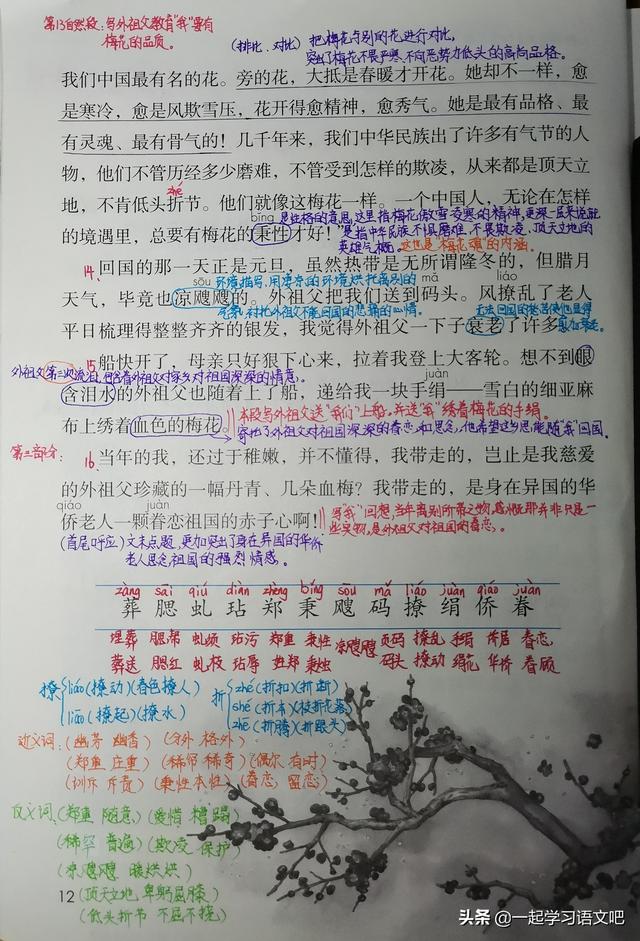 第13自然段:写外祖父教育“我”要有
梅花的品质。
(排比、对比) 把梅花与别的花进行对比,
突出了梅花不畏严寒、不向恶势力低头的高尚品格。
我们中国最有名的花。旁的花,大抵是春暖才开花。她却不一样,愈
是寒冷,愈是风欺雪压,花开得愈精神,愈秀气。她是最有品格、最
有灵魂、最有骨气的!几千年来,我们中华民族出了许多有气节的人
物,他们不管历经多少磨难,不管受到怎样的欺凌,从来都是顶天立
zhé
地,不肯低头折节。他们就像这梅花一样。一个中国人,无论在怎样
bǐng 是性格的意思,这里指梅花傲雪凌寒的精神,更深一层来说就
的境遇里,总要有梅花的秉性才好!
是指中华民族不惧磨难、不畏欺凌、顶天立地的
英雄气概。这也是“梅花魂”的内涵。
14.回国的那一天正是元旦,虽然热带是无所谓隆冬的,但腊月
sōu 环境描写,用凄凉的环境烘托离别的 mǎ liáo
天气,毕竟也凉飕飕的。外祖父把我们送到码头。风撩乱了老人
气氛,衬托外祖父不能回国的悲痛的心情。
平日梳理得整整齐齐的银发,我觉得外祖父一下子衰老了许多。
15船快开了,母亲只好狠下心来,拉着我登上大客轮。想不到眼
外祖父第三次流泪,饱含着外祖父对家乡对祖国深深的情意。 juàn
含泪水的外祖父也随着上了船,递给我一块手绢——雪白的细亚麻
布上绣着血色的梅花。
本段写外祖父送“我们”上船,并送“我”绣着梅花的手绢。
寄托了外祖父对祖国深深的眷恋和思念,他希望这思念能随“我”回国。
第三部分:
16.当年的我,还过于稚嫩,并不懂得,我带走的,岂止是我慈爱
的外祖父珍藏的一幅丹青、几朵血梅?我带走的,是身在异国的华
qiáo juàn
侨老人一颗眷恋祖国的赤子心啊!
写“我”回想当年离别所带之物,感慨那并非只是一
些实物,是外祖父对祖国的眷恋。
(首尾呼应)文末点题,更加突出了身在异国的华侨
老人思念祖国的强烈情感。
zàng sāi qiú diàn zhèng bǐng sōu mǎ liáo juàn qiáo juàn
葬 腮 虬 玷 郑 秉 飕 码 撩 绢 侨 眷
埋葬 腮帮 虬须 玷污 郑重 秉性 凉飕飕 页码 撩乱 手绢 侨居 眷恋
葬送 腮红 虬枝 玷辱 姓郑 秉烛 码头 撩动 绢花 华侨 眷顾
撩 liáo(撩动)(春色撩人)
liāo(撩起)(撩水)
折 zhé(折扣)(折断)
shé(折本)(枝折花落)
zhē(折腾)(折跟头)
近义词:(幽芳 幽香)(分外 格外)
(郑重 庄重)(稀罕 稀奇)(偶尔 有时)
(训斥 斥责)(秉性 本性)(眷恋 留恋)
反义词:(郑重 随意)(爱惜 糟蹋)
(稀罕 普遍)(欺凌 保护)
(凉飕飕 暖烘烘)
(顶天立地 卑躬屈膝)
(低头折节 不屈不挠)
12
头条 @一起学习语文吧